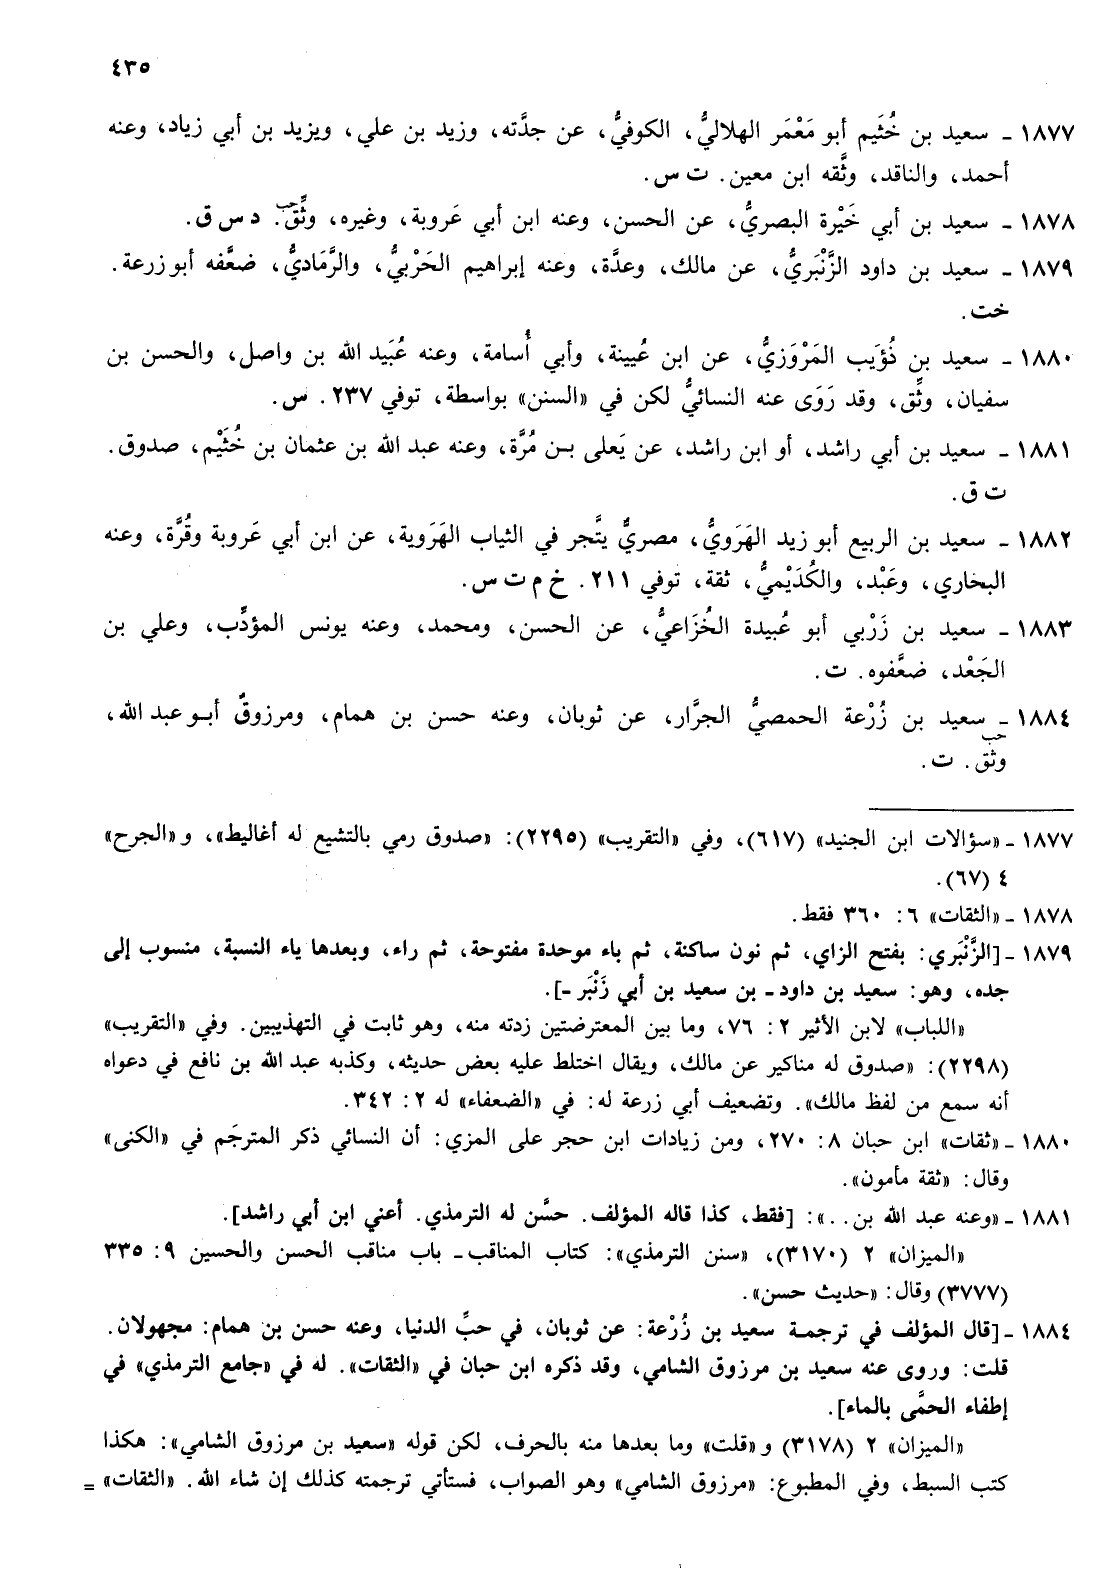 ٤٣٥
١٨٧٧ ـ سعيد بن خُثَيم أبو مَعْمَر الهلاليُّ، الكوفيُّ، عن جدَّته، وزيد بن علي، ويزيد بن أبي زياد، وعنه
أحمد، والناقد، وثَّقه ابن معين. ت س.
١٨٧٨ ـ سعيد بن أبي خَيْرة البصريُّ، عن الحسن، وعنه ابن أبي عَروبة، وغيره، وثِّق حب. د س ق.
١٨٧٩ ـ سعيد بن داود الزَّنْبَريُّ، عن مالك، وعدَّة، وعنه إبراهيم الحَرْبيُّ، والرَّمَاديُّ، ضعَّفه أبو زرعة.
خت.
١٨٨٠ ـ سعيد بن ذُؤَيب المَرْوَزيُّ، عن ابن عُيينة، وأبي أُسامة، وعنه عُبَيد الله بن واصل، والحسن بن
سفيان، وثِّق، وقد رَوَى عنه النسائيُّ لكن في «السنن» بواسطة، توفي ٢٣٧. س.
١٨٨١ ـ سعيد بن أبي راشد، أو ابن راشد، عن يَعلى بـن مُرَّة، وعنه عبد الله بن عثمان بن خُثَيْم، صدوق.
ت ق.
١٨٨٢ ـ سعيد بن الربيع أبو زيد الهَرَويُّ، مصريٌّ يتَّجر في الثياب الهَرَوية، عن ابن أبي عَروبة وقُرَّة، وعنه
البخاري، وعَبْد، والكُدَيْميُّ، ثقة، توفي ٢١١. خ م ت س.
١٨٨٣ ـ سعيد بن زَرْبي أبو عُبيدة الخُزَاعيُّ، عن الحسن، ومحمد، وعنه يونس المؤدِّب، وعلي بن
الجَعْد، ضعَّفوه. ت.
١٨٨٤ ـ سعيد بن زُرْعة الحمصيُّ الجرَّار، عن ثوبان، وعنه حسن بن همام، ومرزوقٌ أبـو عبد الله،
وثق حب. ت.
١٨٧٧ ـ «سؤالات ابن الجنيد» (٦١٧)، وفي «التقريب» (٢٢٩٥): «صدوق رمي بالتشيع له أغاليط»، و «الجرح»
٤ (٦٧).
١٨٧٨ ـ «الثقات» ٦: ٣٦٠ فقط.
١٨٧٩ ـ [الزَّنْبَري: بفتح الزاي، ثم نون ساكنة، ثم باء موحدة مفتوحة، ثم راء، وبعدها ياء النسبة، منسوب إلى
جده، وهو: سعيد بن داود ـ بن سعيد بن أبي زَنْبَر ـ].
«اللباب» لابن الأثير ٢: ٧٦، وما بين المعترضتين زدته منه، وهو ثابت في التهذيبين. وفي «التقريب»
(٢٢٩٨): «صدوق له مناكير عن مالك، ويقال اختلط عليه بعض حديثه، وكذبه عبد الله بن نافع في دعواه
أنه سمع من لفظ مالك». وتضعيف أبي زرعة له: في «الضعفاء» له ٢: ٣٤٢.
١٨٨٠ ـ «ثقات» ابن حبان ٨: ٢٧٠، ومن زيادات ابن حجر على المزي: أن النسائي ذكر المترجَم في «الكنى»
وقال: «ثقة مأمون».
١٨٨١ ـ «وعنه عبد الله بن..»: [فقط، كذا قاله المؤلف. حسَّن له الترمذي. أعني ابن أبي راشد].
«الميزان» ٢ (٣١٧٠)، «سنن الترمذي»: كتاب المناقب ـ باب مناقب الحسن والحسين ٩: ٣٣٥
(٣٧٧٧) وقال: «حديث حسن».
١٨٨٤ ـ [قال المؤلف في ترجمـة سعيد بن زُرْعة: عن ثوبان، في حبِّ الدنيا، وعنه حسن بن همام: مجهولان.
قلت: وروى عنه سعيد بن مرزوق الشامي، وقد ذكره ابن حبان في «الثقات». له في «جامع الترمذي» في
إطفاء الحمَّى بالماء].
«الميزان» ٢ (٣١٧٨) و «قلت» وما بعدها منه بالحرف، لكن قوله «سعيد بن مرزوق الشامي»: هكذا
كتب السبط، وفي المطبوع: «مرزوق الشامي» وهو الصواب، فستأتي ترجمته كذلك إن شاء الله. «الثقات» =